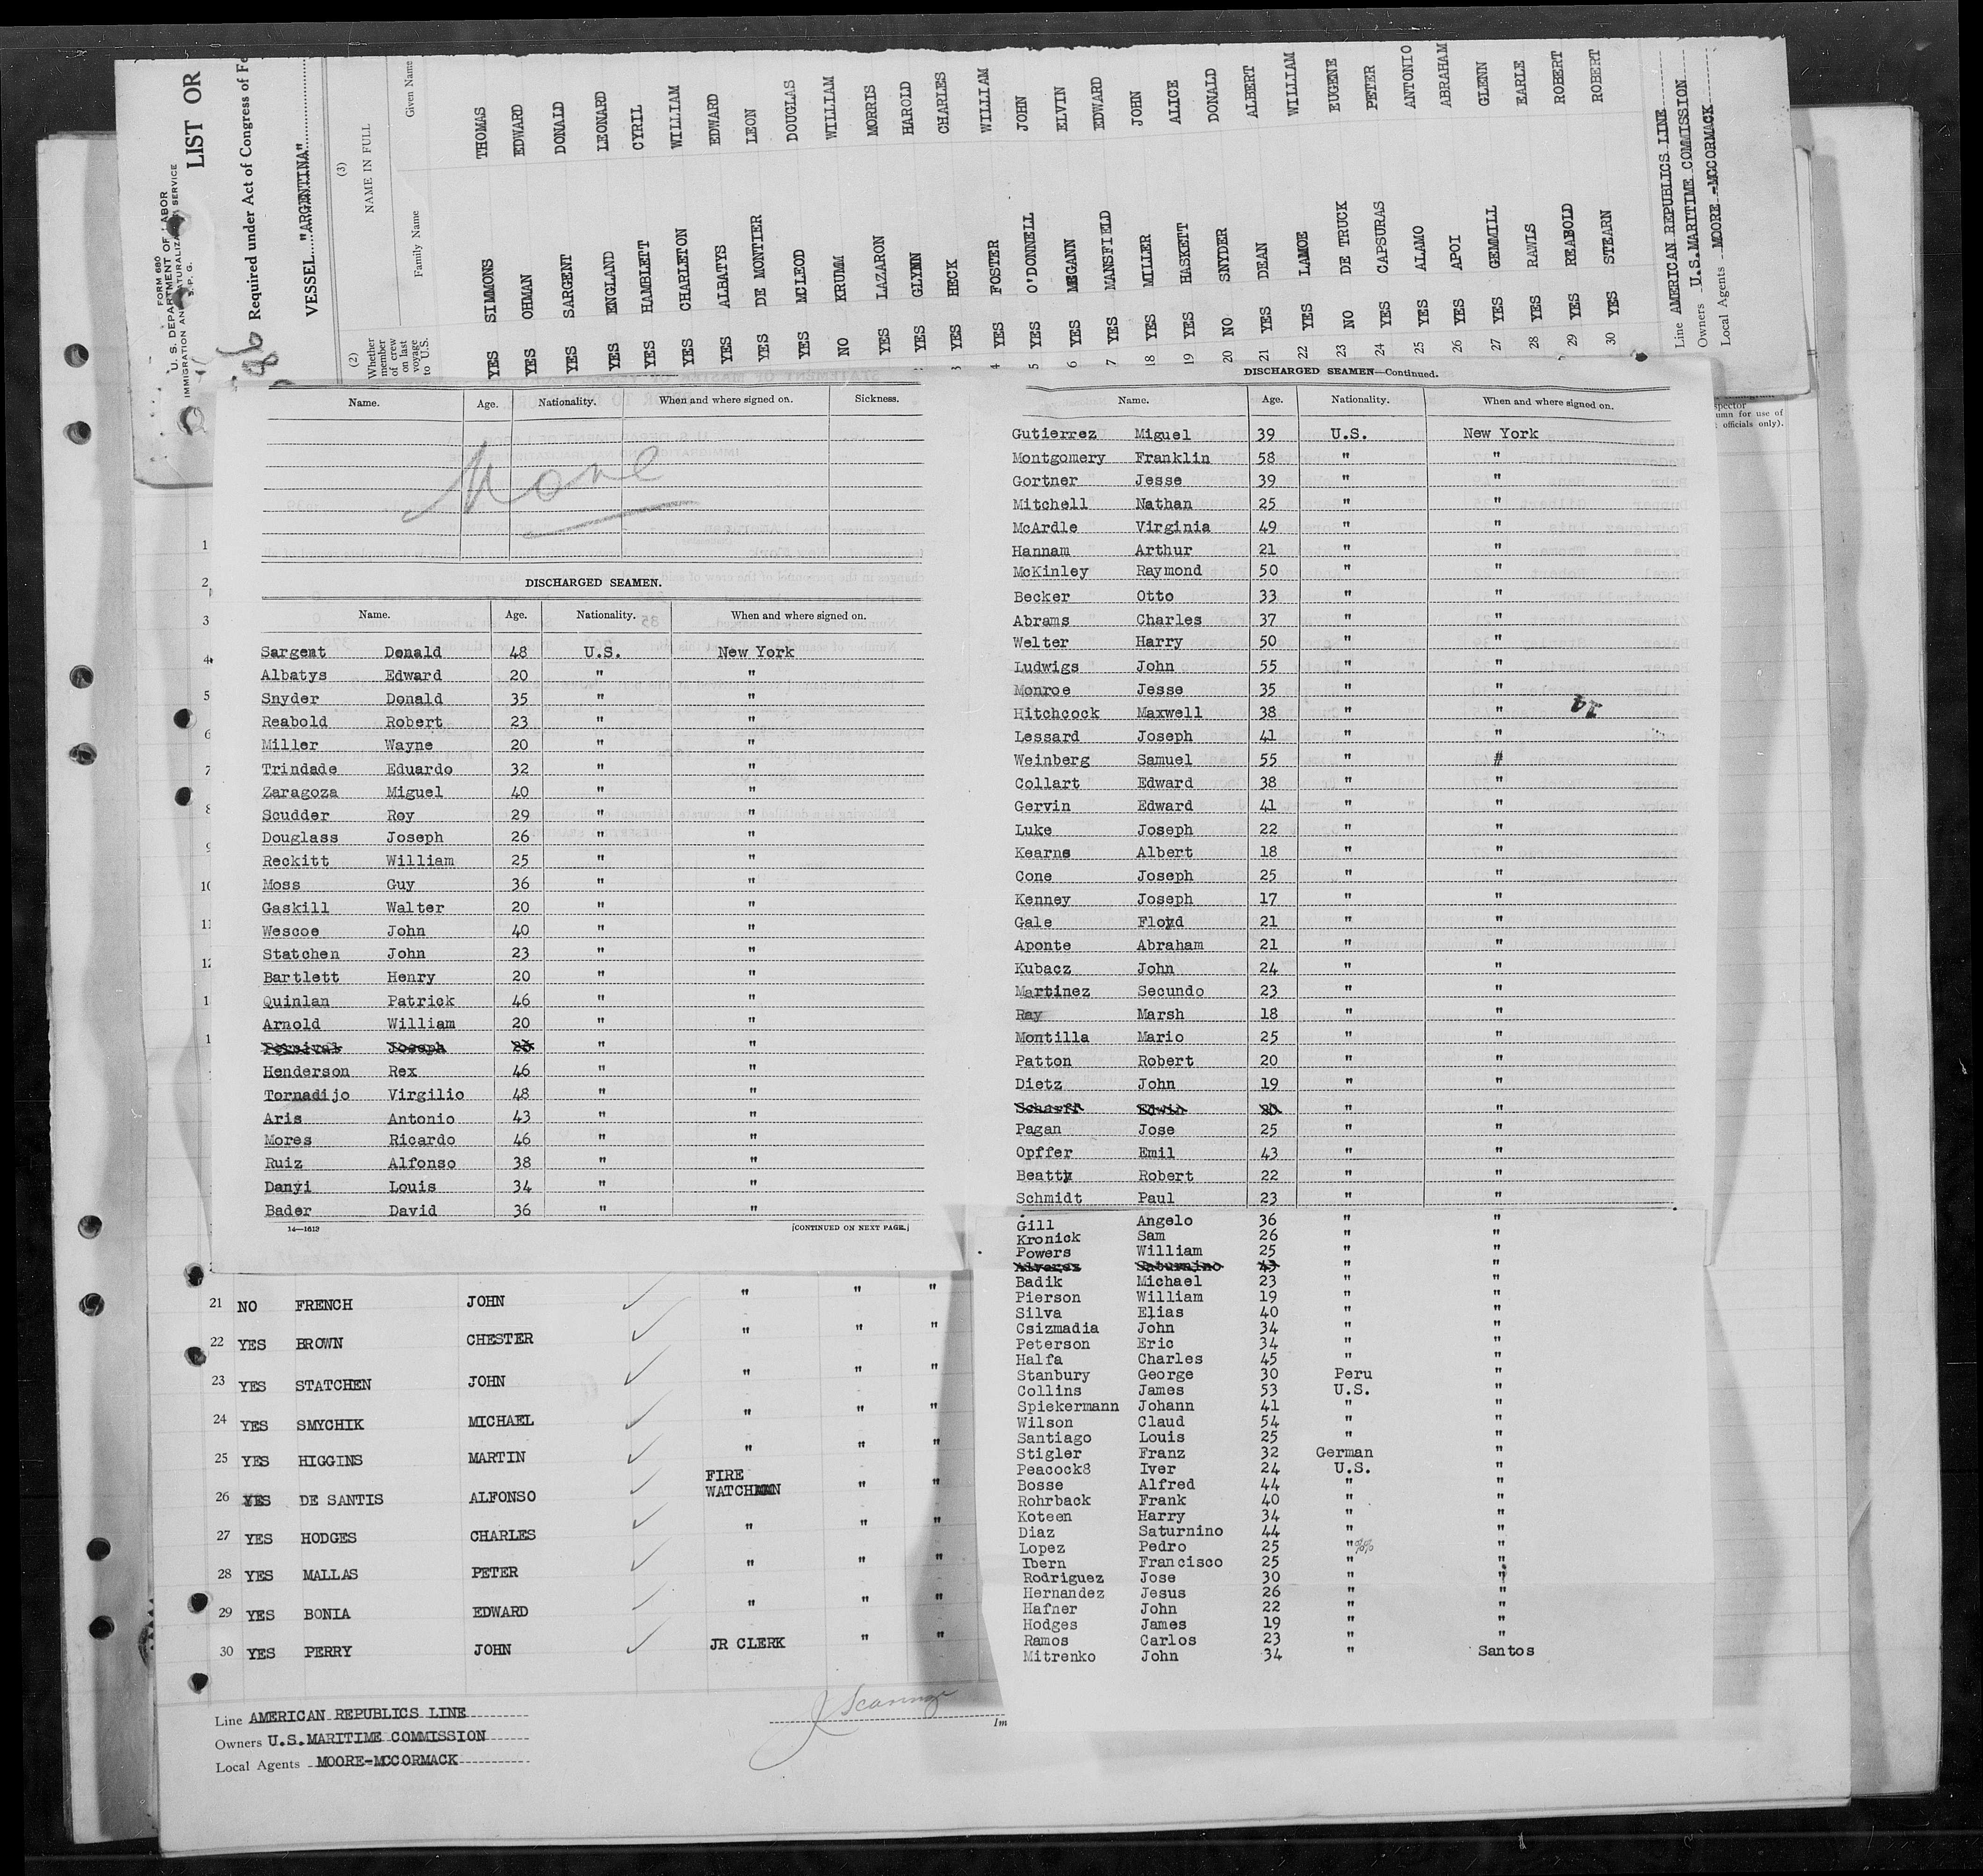 FORM 680
U. S. DEPARTMENT OF LABOR
IMMIGRATION AND NATURALIZATION SERVICE
S. P. G.
LIST OR
Required under Act of Congress of Fe
VESSEL "ARGENTINA"
(2) (3)
Whether member of crew on last voyage to U.S. NAME IN FULL
Family Name Given Name
YES SIMMONS THOMAS
YES OHMAN EDWARD
YES SARGENT DONALD
YES ENGLAND LEONARD
YES HAMBLETT CYRIL
YES CHARLETON WILLIAM
YES ALBATYS EDWARD
YES DE MONTIER LEON
YES MCLEOD DOUGLAS
NO KRUMM WILLIAM
YES LAZARON MORRIS
YES GLYNN HAROLD
3 YES HECK CHARLES
4 YES FOSTER WILLIAM
5 YES O'DONNELL JOHN
6 YES MEGANN ELVIN
7 YES MANSFIELD EDWARD
18 YES MILLER JOHN
19 YES HASKETT ALICE
20 NO SNYDER DONALD
21 YES DEAN ALBERT
22 YES LAMOE WILLIAM
23 NO DE TRUCK EUGENE
24 YES CAPSURAS PETER
25 YES ALAMO ANTONIO
26 YES APOI ABRAHAM
27 YES GEMMILL GLENN
28 YES RAWIS EARLE
29 YES REABOLD ROBERT
30 YES STEARN ROBERT
Line AMERICAN REPUBLICS LINE
Owners U.S.MARITIME COMMISSION
Local Agents MOORE-MCCORMACK
Name. Age. Nationality. When and where signed on. Sickness.
None
DISCHARGED SEAMEN.
Name. Age. Nationality. When and where signed on.
Sargent Donald 48 U.S. New York
Albatys Edward 20 " "
Snyder Donald 35 " "
Reabold Robert 23 " "
Miller Wayne 20 " "
Trindade Eduardo 32 " "
Zaragoza Miguel 40 " "
Scudder Roy 29 " "
Douglass Joseph 26 " "
Reckitt William 25 " "
Moss Guy 36 " "
Gaskill Walter 20 " "
Wescoe John 40 " "
Statchen John 23 " "
Bartlett Henry 20 " "
Quinlan Patrick 46 " "
Arnold William 20 " "
Joseph " "
Henderson Rex 46 " "
Tornadijo Virgilio 48 " "
Aris Antonio 43 " "
Mores Ricardo 46 " "
Ruiz Alfonso 38 " "
Danyi Louis 34 " "
Bader David 36 " "
14—1613 [CONTINUED ON NEXT PAGE.]
DISCHARGED SEAMEN—Continued.
Name. Age. Nationality. When and where signed on.
Gutierrez Miguel 39 U.S. New York
Montgomery Franklin 58 " "
Gortner Jesse 39 " "
Mitchell Nathan 25 " "
McArdle Virginia 49 " "
Hannam Arthur 21 " "
McKinley Raymond 50 " "
Becker Otto 33 " "
Abrams Charles 37 " "
Welter Harry 50 " "
Ludwigs John 55 " "
Monroe Jesse 35 " "
Hitchcock Maxwell 38 " "
Lessard Joseph 41 " "
Weinberg Samuel 55 " #
Collart Edward 38 " "
Gervin Edward 41 " "
Luke Joseph 22 " "
Kearns Albert 18 " "
Cone Joseph 25 " "
Kenney Joseph 17 " "
Gale Floyd 21 " "
Aponte Abraham 21 " "
Kubacz John 24 " "
Martinez Secundo 23 " "
Ray Marsh 18 " "
Montilla Mario 25 " "
Patton Robert 20 " "
Dietz John 19 " "
Scharff Edwin " "
Pagan Jose 25 " "
Opffer Emil 43 " "
Beatty Robert 22 " "
Schmidt Paul 23 " "
Gill Angelo 36 " "
Kronick Sam 26 " "
Powers William 25 " "
Alverez Saturnino 43 " "
Badik Michael 23 " "
Pierson William 19 " "
Silva Elias 40 " "
Csizmadia John 34 " "
Peterson Eric 34 " "
Halfa Charles 45 " "
Stanbury George 30 Peru "
Collins James 53 U.S. "
Spiekermann Johann 41 " "
Wilson Claud 54 " "
Santiago Louis 25 " "
Stigler Franz 32 German "
Peacock8 Iver 24 U.S. "
Bosse Alfred 44 " "
Rohrback Frank 40 " "
Koteen Harry 34 " "
Diaz Saturnino 44 " "
Lopez Pedro 25 "%% "
Ibern Francisco 25 " "
Rodriguez Jose 30 " "
Hernandez Jesus 26 " "
Hafner John 22 " "
Hodges James 19 " "
Ramos Carlos 23 " "
Mitrenko John 34 " Santos
umn for use of
officials only).
1
2
3
4
5
6
7
8
10
11
12
21 NO FRENCH JOHN ✓ " " "
22 YES BROWN CHESTER ✓ " " "
23 YES STATCHEN JOHN ✓ " " "
24 YES SMYCHIK MICHAEL ✓ " " "
25 YES HIGGINS MARTIN ✓ " " "
26 YES DE SANTIS ALFONSO ✓ FIRE WATCHMAN " "
27 YES HODGES CHARLES ✓ " " "
28 YES MALLAS PETER ✓ " " "
29 YES BONIA EDWARD ✓ " " "
30 YES PERRY JOHN ✓ JR CLERK " "
Line AMERICAN REPUBLICS LINE
Owners U.S.MARITIME COMMISSION
Local Agents MOORE-MCCORMACK
Im